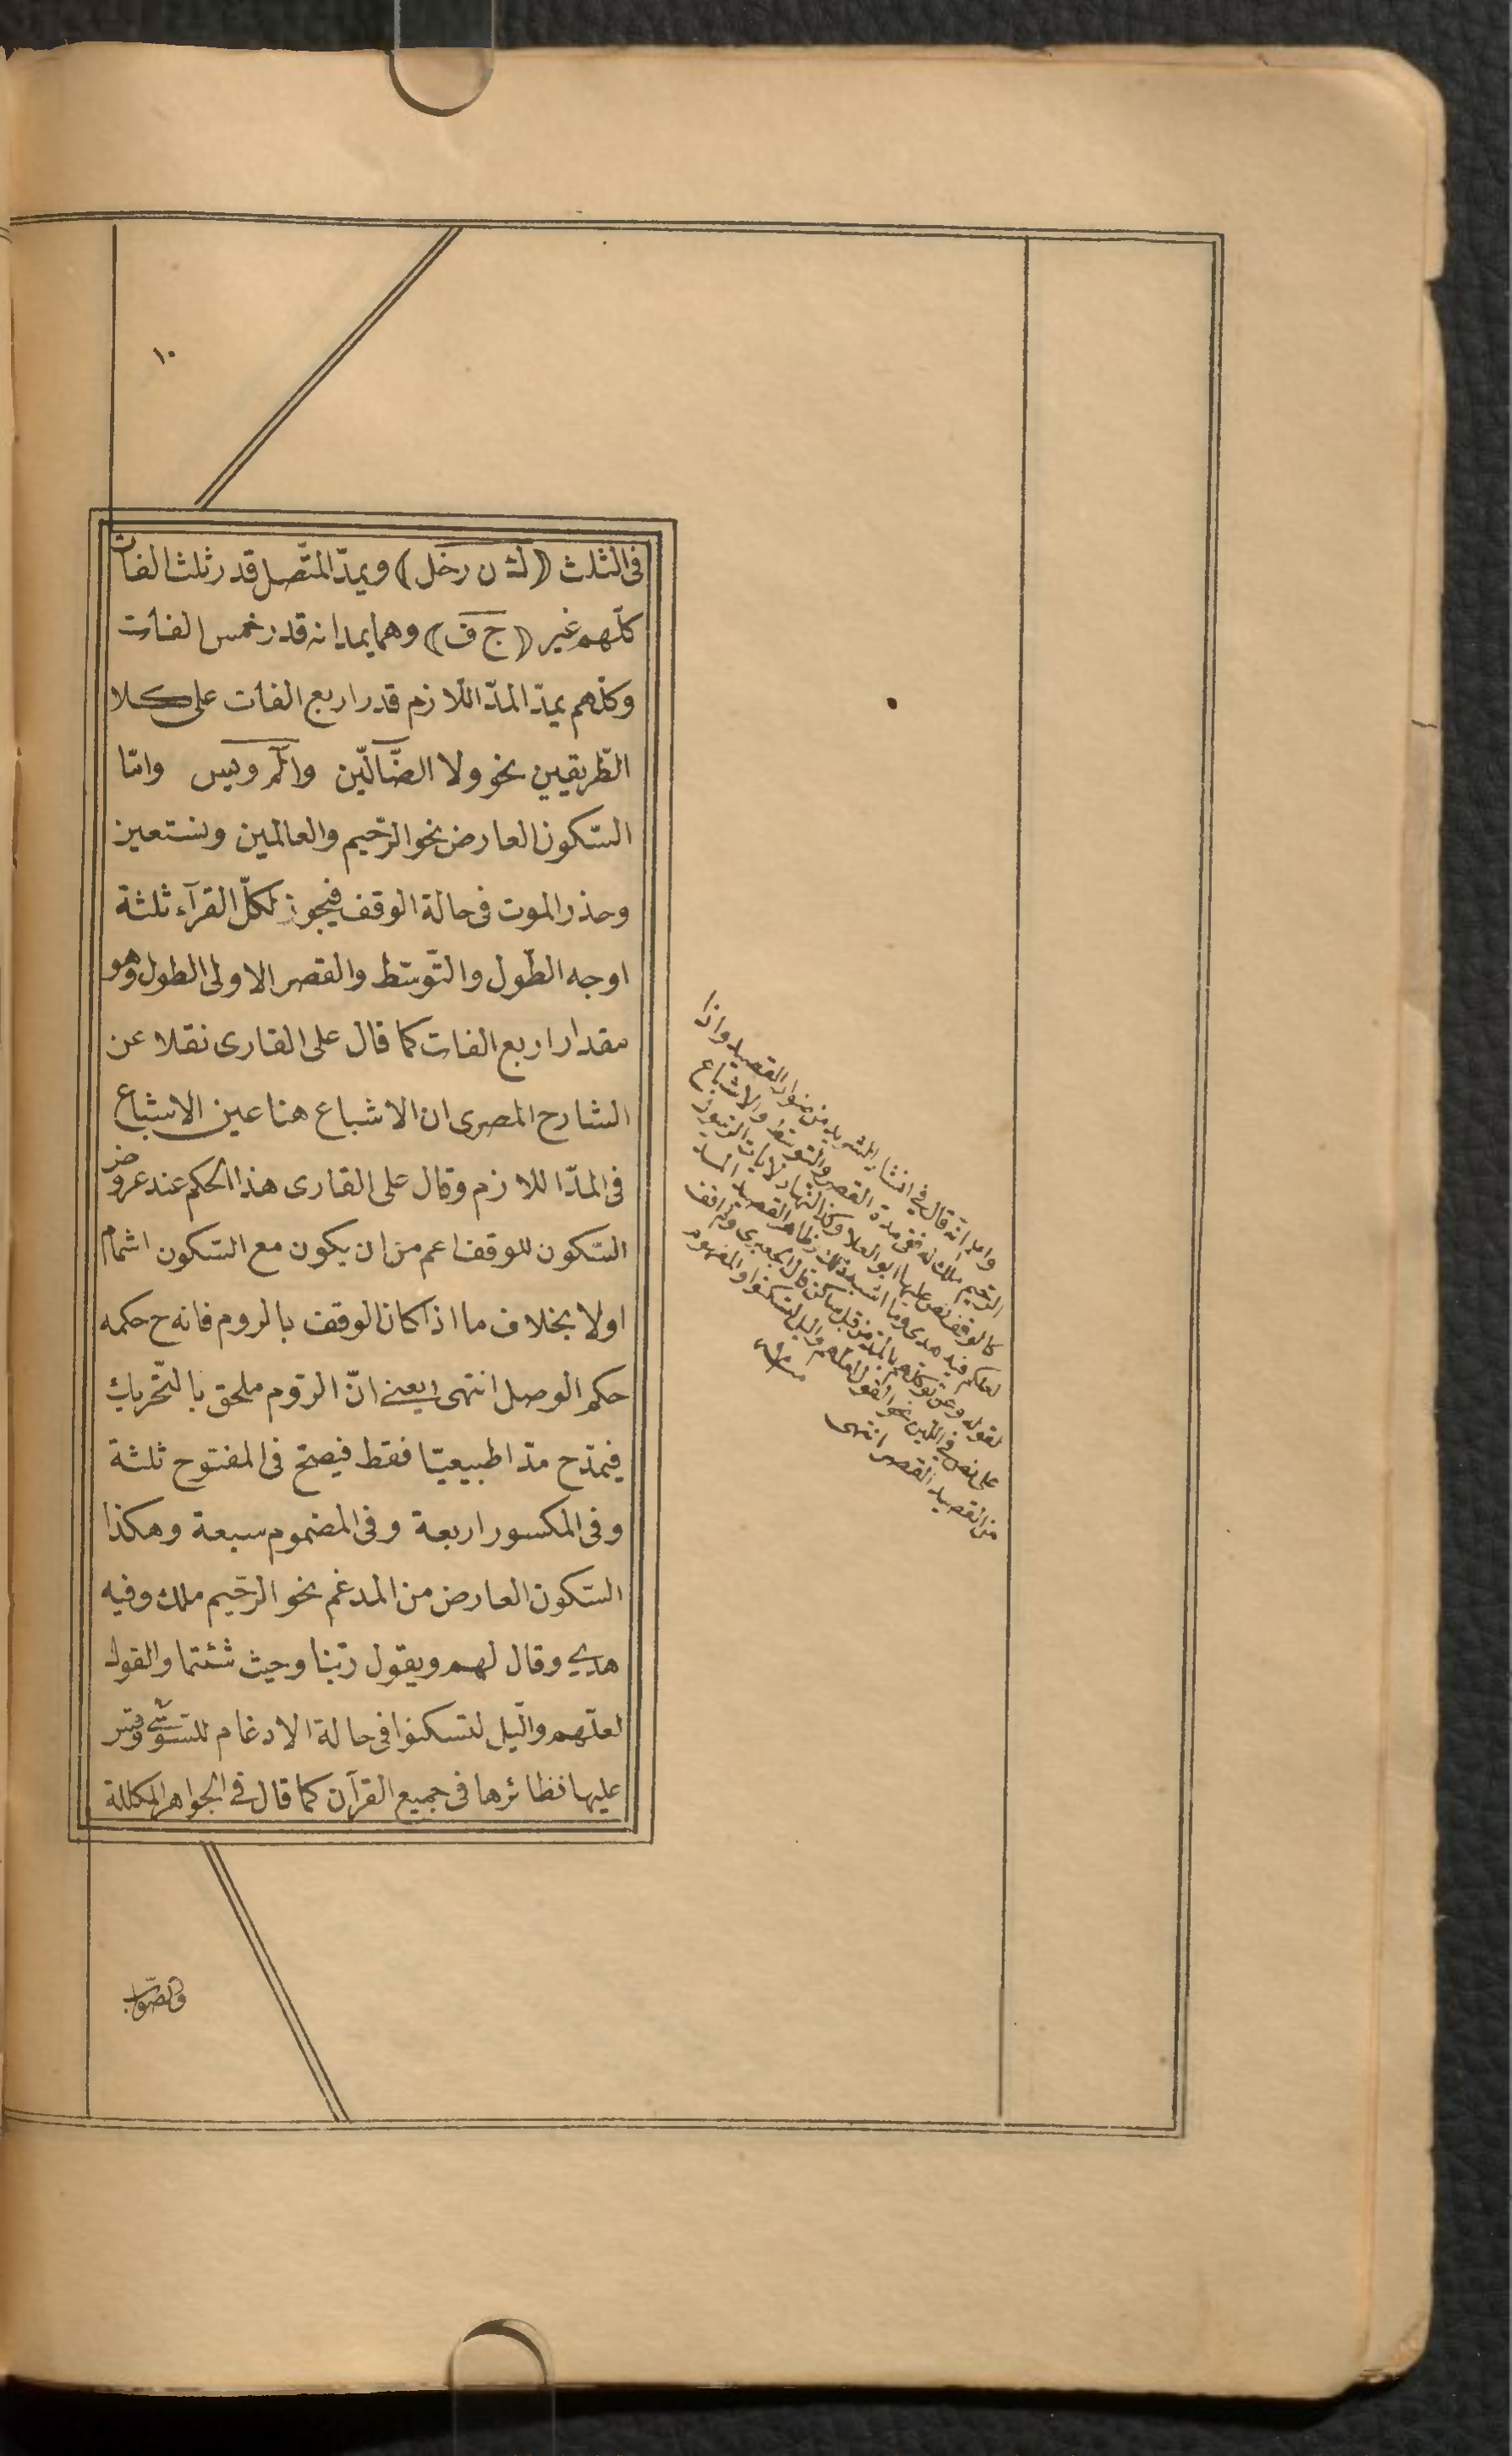 ١٠
فى الثلث (لث ن رخل) ويمدّ المتّصل قدر ثلث الفات
كلّهم غير (ج ف) وهما يمدانه قدر خمس الفات
وكلّهم يمدّ المدّ اللازم قدر اربع الفات على كلا
الطّريقين نحو ولا الضّآلّين والٓمٓ ويٰس وامّا
السّكون العارض نحو الرّحيم والعالمين ونستعين
وحذر الموت فى حالة الوقف فيجوز لكلّ القرآء ثلثة
اوجه الطّول والتّوسّط والقصر الاولى الطول وهو
مقدار اربع الفات كما قال على القارى نقلا عن
الشارح المصرى ان الاشباع هنا عين الاشباع
فى المدّ اللازم وقال على القارى هذا الحكم عند عروض
السّكون للوقف اعم من ان يكون مع السّكون اشمام
اولا بخلاف ما اذا كان الوقف بالروم فانه ح حكمه
حكم الوصل انتهى يعنى انّ الرّوم ملحق بالتّحريك
فيمدّ ح مدّا طبيعيّا فقط فيصحّ فى المفتوح ثلثة
وفى المكسور اربعة وفى المضموم سبعة وهكذا
السّكون العارض من المدغم نحو الرّحيم ملك وفيه
هدى وقال لهم ويقول ربّنا وحيث شئتما والقول
لعلّهم والّيل لتسكنوا فى حالة الادغام للسّوسى وقس
عليها نظائرها فى جميع القرآن كما قال فى الجواهر المكللة
الرّحيم ملك له ففى مدة القصر والتوسّط والاشباع
كالوقف نص عليها ابو العلا وكذا النهار لايات
على نص فى اللّين نحو القول لعلّهم والّيل لتسكنوا والمفهوم
من القصيد القصر انتهى
منه